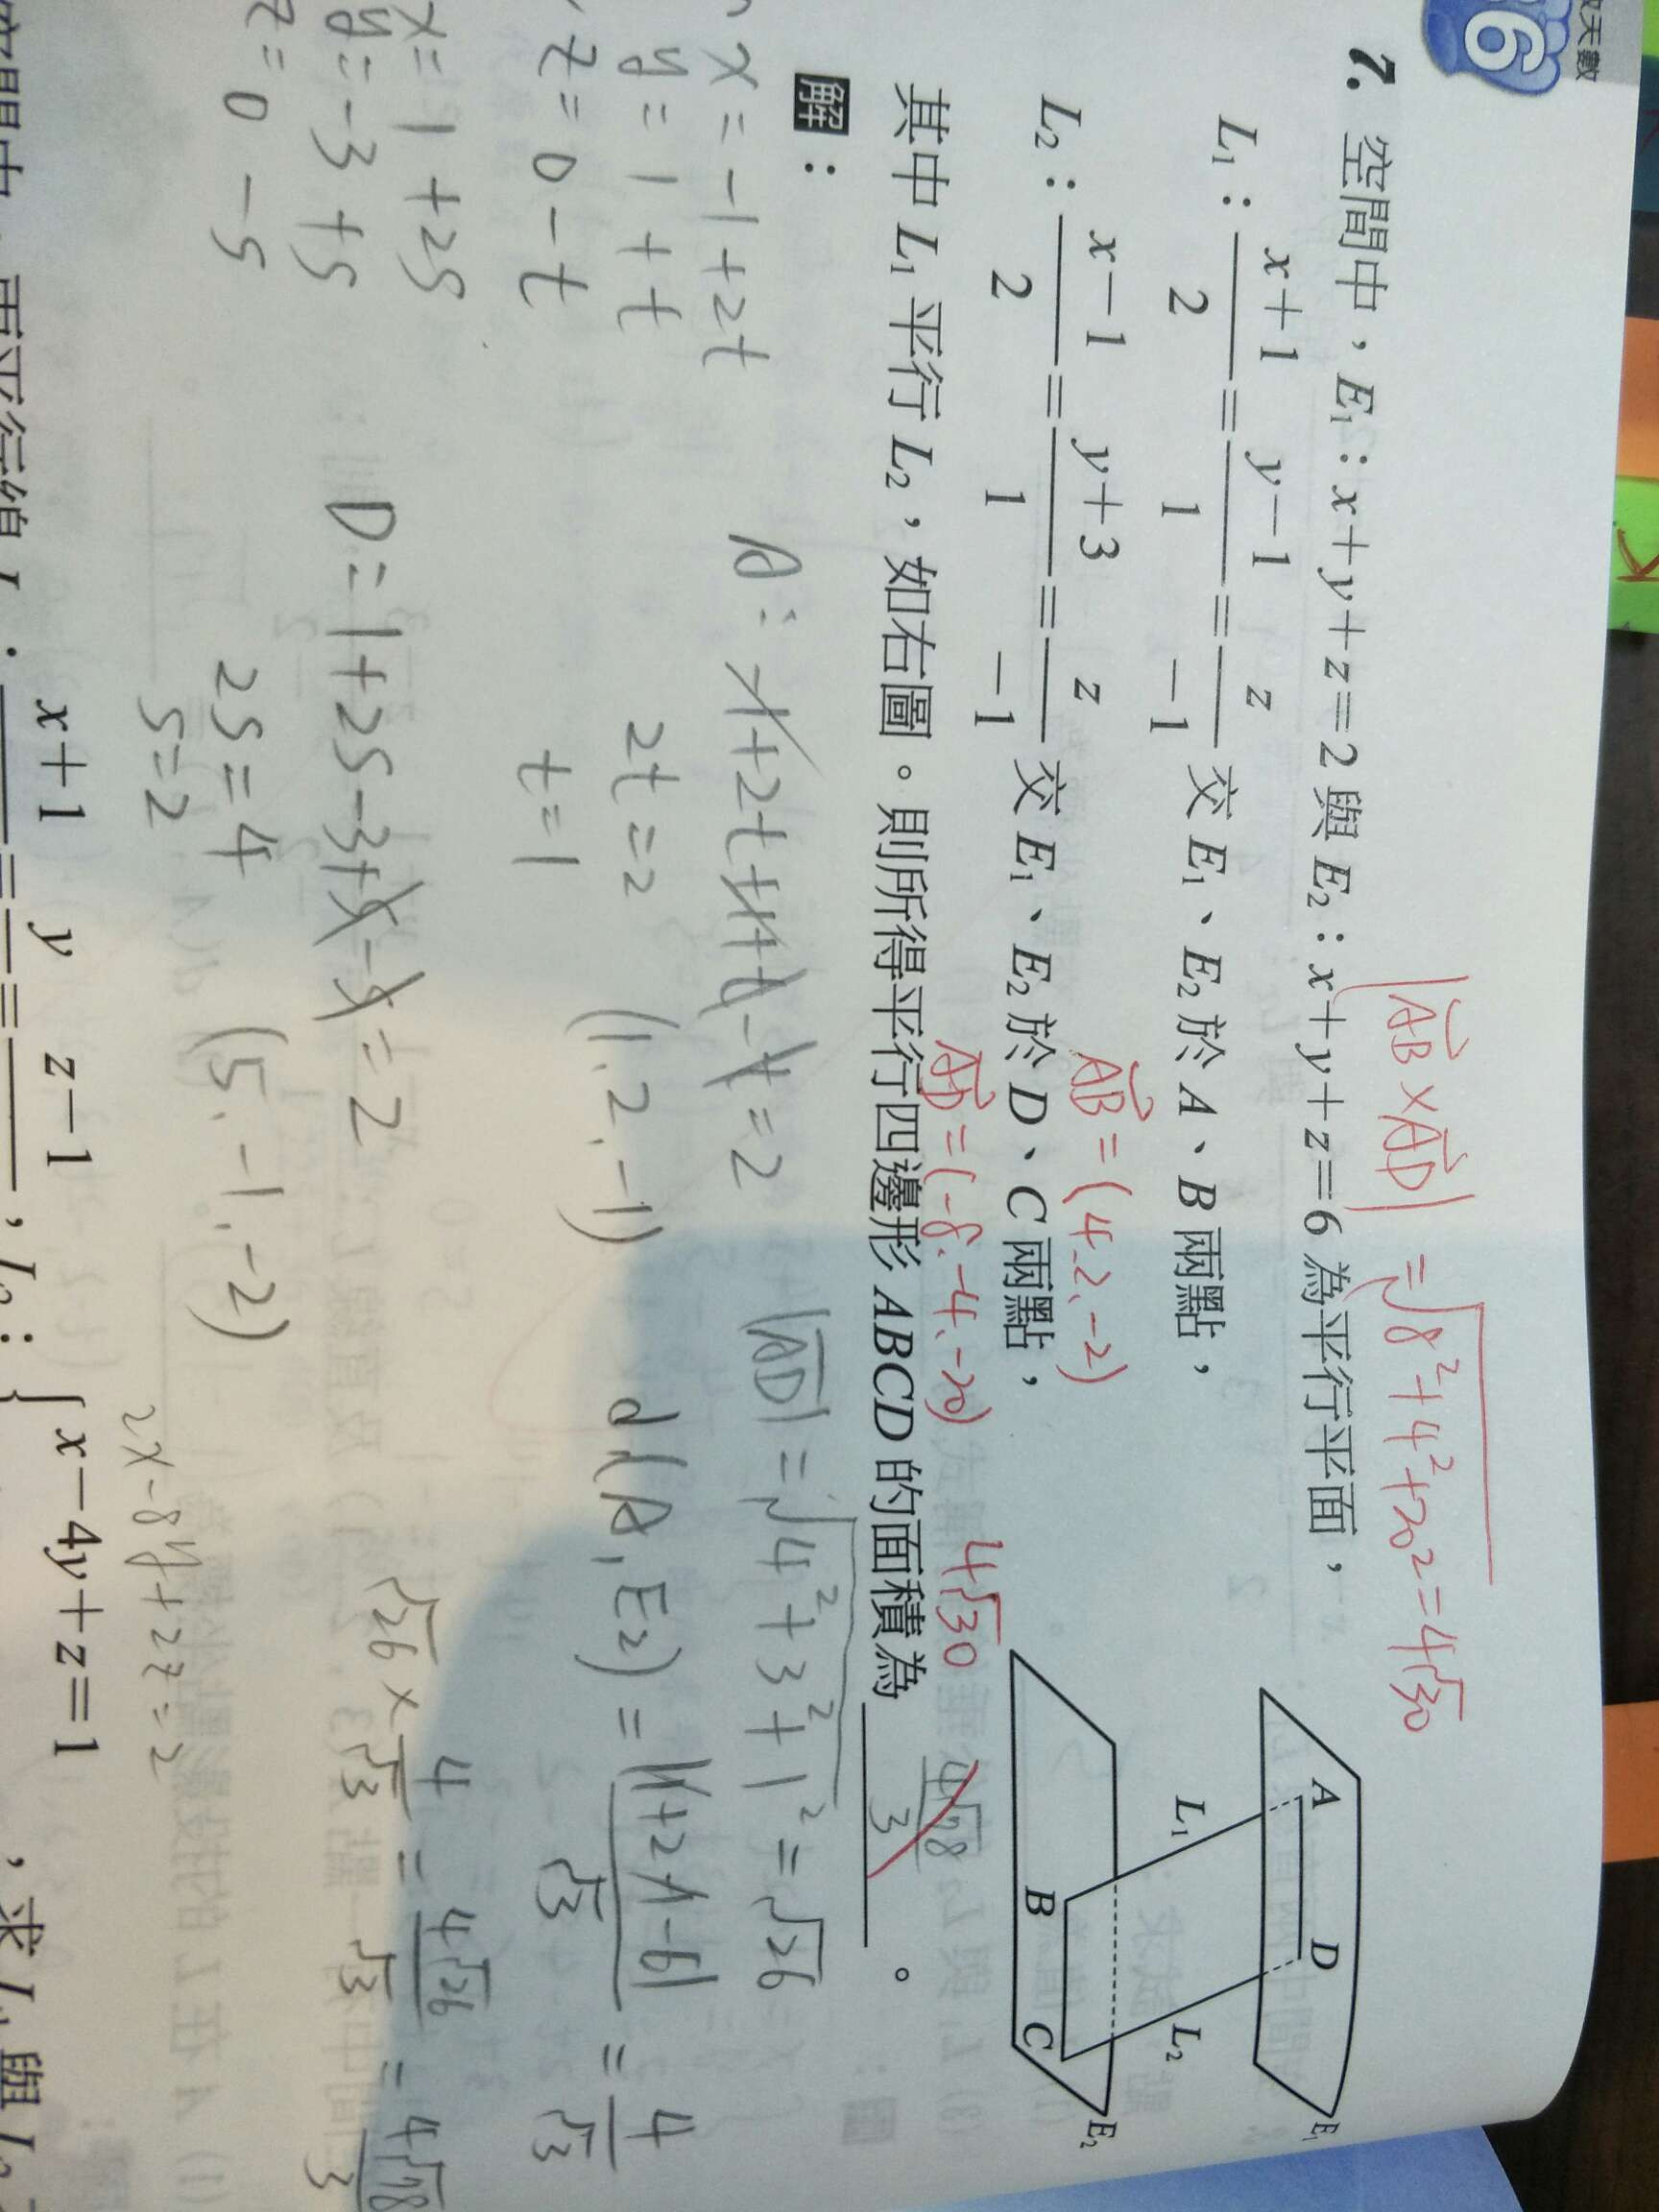 6
7. 空間中，E₁：x+y+z=2 與 E₂：x+y+z=6 為平行平面，
L₁：(x+1)/2=(y-1)/1=z/-1 交 E₁、E₂ 於 A、B 兩點，
L₂：(x-1)/2=(y+3)/1=z/-1 交 E₁、E₂ 於 D、C 兩點，
其中 L₁ 平行 L₂，如右圖。則所得平行四邊形 ABCD 的面積為 。
|AB×AD| =√8²+4²+20²=4√30
AB=(4、2、-2)
AD=(-8、-4、-20)
4√30
4√78/3
A
D
L₁
L₂
B
C
E₁
E₂
解：
x=-1+2t
y=1+t
z=0-t
x=1+2s
y=-3+s
z=0-s
A：-1+2t+1+t-t=2
2t=2
t=1
(1、2、-1)
D=1+2s-3+s-s=2
2s=4
s=2
(5、-1、-2)
|AD|=√4²+3²+1²=√26
d(A,E₂)=|1+2-1-6|/√3=4/√3
√26×4/√3=4√26/√3=4√78/3
2x-8y+2z=2
x+1 = y = z-1 ，L₂：{ x-4y+z=1